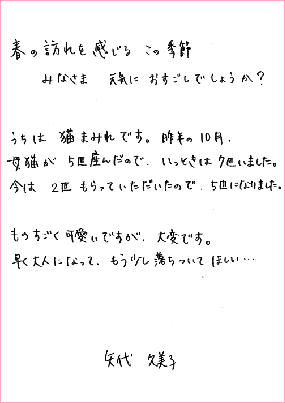 春の訪れを感じる この季節
みなさま 元気に おすごしでしょうか?
うちは 猫まみれです。昨年の10月、
母猫が 5匹産んだので、いっときは 7匹いました。
今は 2匹 もらっていただいたので、5匹になりました。
ものすごく可愛いですが、大変です。
早く大人になって、もう少し落ちついて ほしい…
矢代 久美子